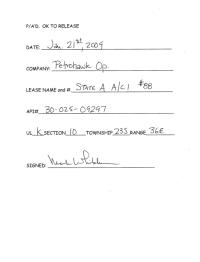 P/A'D. OK TO RELEASE
DATE: Jan 21st, 2009
COMPANY: Petrohawk Op.
LEASE NAME and # State A A/C 1 #88
API# 30-025-09297
UL K SECTION 10 TOWNSHIP 23S RANGE 36E
SIGNED: